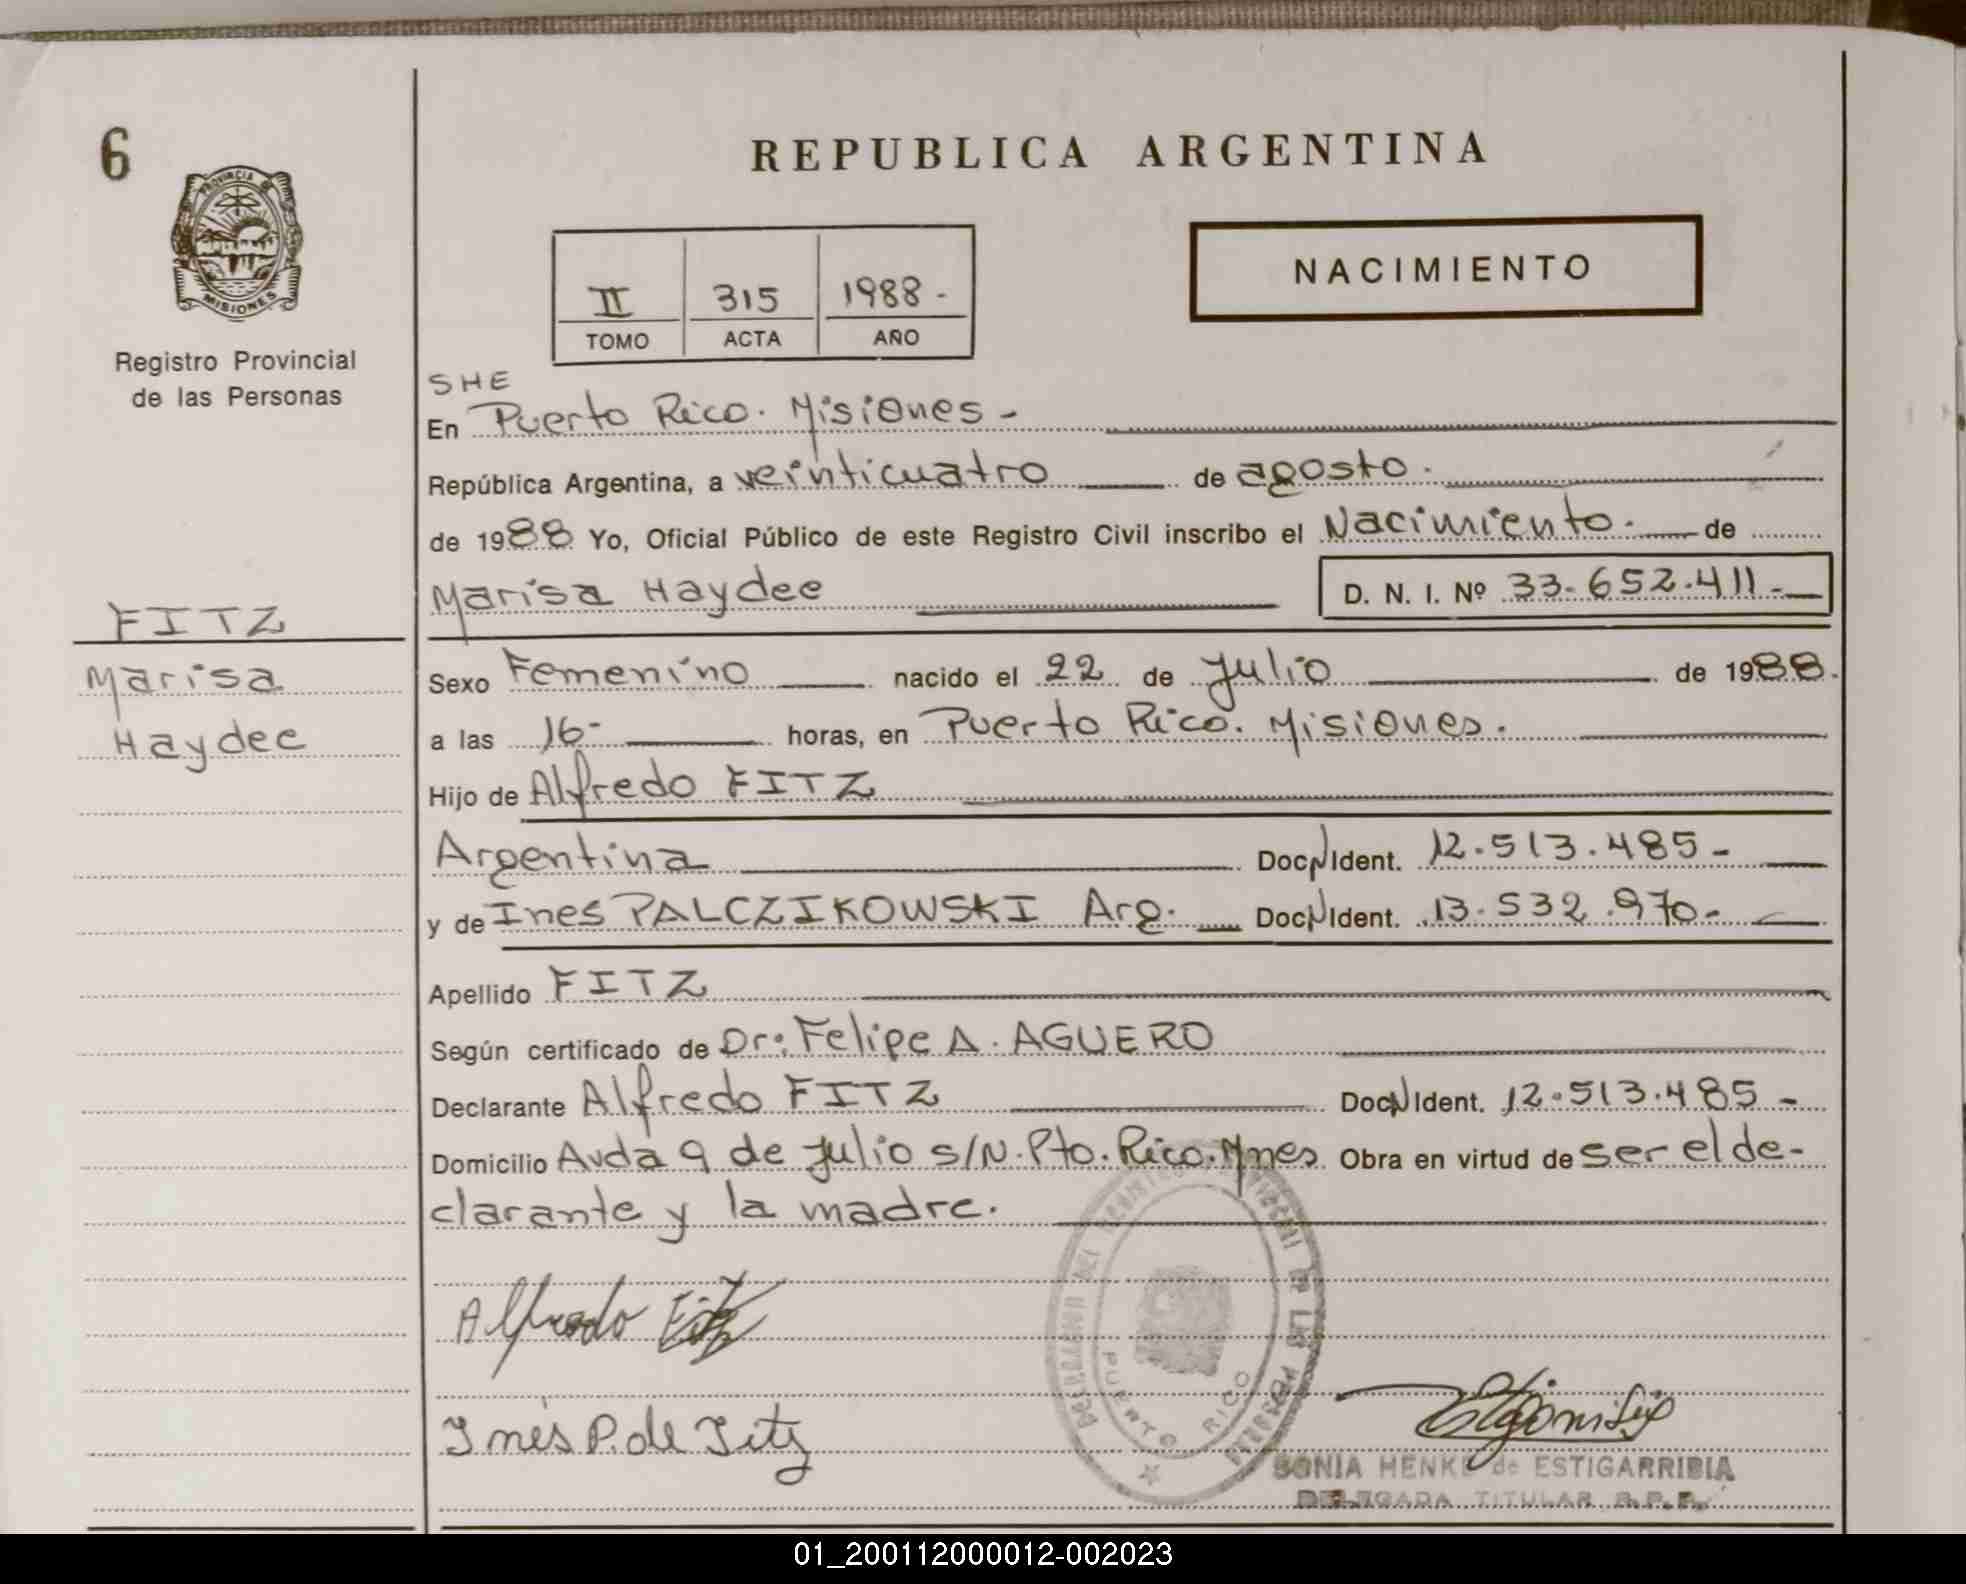 6
REPUBLICA ARGENTINA
PROVINCIA DE
MISIONES
Registro Provincial
de las Personas
NACIMIENTO
II 315 1988-
TOMO ACTA AÑO
SHE
En Puerto Rico. Misiones-
República Argentina, a veinticuatro de agosto.
de 1988 Yo, Oficial Público de este Registro Civil inscribo el Nacimiento. de
Marisa Haydee D. N. I. Nº 33.652.411-
FITZ
Marisa
Haydee
Sexo Femenino nacido el 22 de Julio de 1988.
a las 16- horas, en Puerto Rico. Misiones.
Hijo de Alfredo FITZ
Argentina DocN Ident. 12.513.485-
y de Ines PALCZIKOWSKI Arg. DocN Ident. 13.532.970-
Apellido FITZ
Según certificado de Dr: Felipe A. AGUERO
Declarante Alfredo FITZ DocN Ident. 12.513.485-
Domicilio Avda 9 de Julio s/N. Pto. Rico. Mnes Obra en virtud de ser el de-
clarante y la madre.
Alfredo Fitz
Inés P. de Fitz
DELEGACION DEL REGISTRO PROVINCIAL DE LAS PERSONAS
PUERTO RICO
SONIA HENKE de ESTIGARRIBIA
DELEGADA TITULAR R.P.P.
01_200112000012-002023